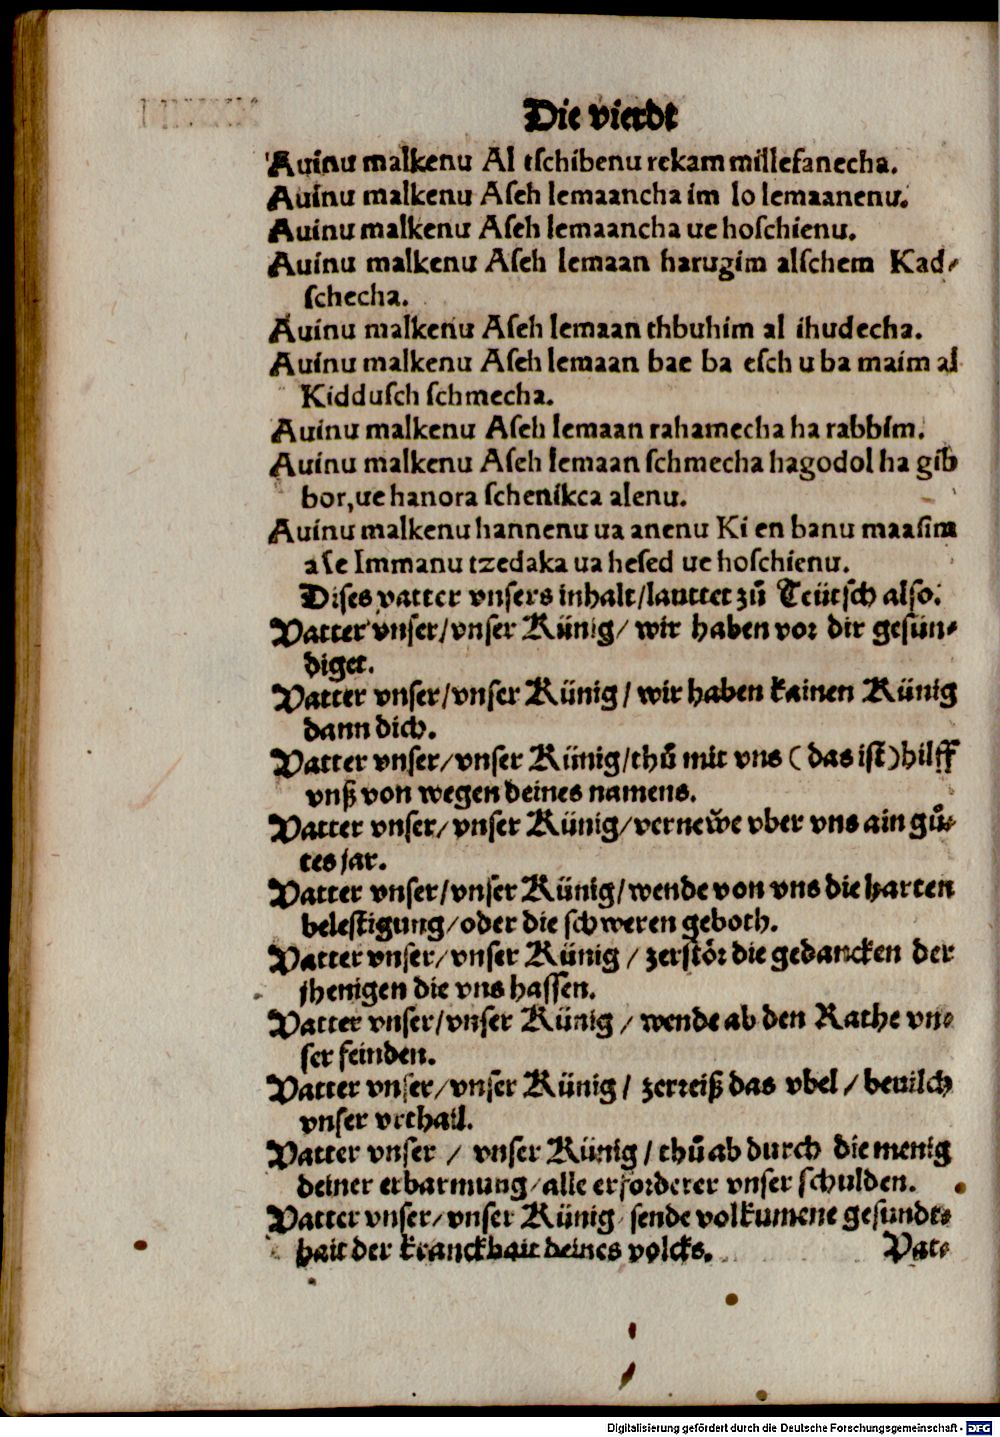 Die vierdt
Auinu malkenu Al tſchibenu rekam millefanecha.
Auinu malkenu Aſeh lemaancha im lo lemaanenu.
Auinu malkenu Aſeh lemaancha ue hoſchienu.
Auinu malkenu Aſeh lemaan harugim alſchem Kad⸗
ſchecha.
Auinu malkenu Aſeh lemaan thbuhim al ihudecha.
Auinu malkenu Aſeh lemaan bae ba eſch u ba maim al
Kidduſch ſchmecha.
Auinu malkenu Aſeh lemaan rahamecha ha rabbim.
Auinu malkenu Aſeh lemaan ſchmecha hagodol ha gib
bor, ue hanora ſchenikca alenu.
Auinu malkenu hannenu ua anenu Ki en banu maaſim
aſe Immanu tzedaka ua heſed ue hoſchienu.
Diſes vatter vnſers inhalt/lauttet zů Teütſch alſo.
Vatter vnſer/vnſer Künig/ wir haben vor dir geſün⸗
diget.
Vatter vnſer/vnſer Künig/ wir haben kainen Künig
dann dich.
Vatter vnſer/vnſer Künig/thů mit vns (das iſt) hilff
vnß von wegen deines namens.
Vatter vnſer/ vnſer Künig/vernew̆e vber vns ain gů⸗
tes jar.
Vatter vnſer/vnſer Künig/wende von vns die harten
beleſtigung/oder die ſchweren geboth.
Vatter vnſer/vnſer Künig / zerſtör die gedancken der
jhenigen die vns haſſen.
Vatter vnſer/vnſer Künig / wende ab den Rathe vn⸗
ſer feinden.
Vatter vnſer/vnſer Künig/ zerreiß das vbel / beuilch
vnſer vrthail.
Vatter vnſer / vnſer Künig / thů ab durch die menig
deiner erbarmung/alle erforderer vnſer ſchulden.
Vatter vnſer/vnſer Künig/ ſende volkumene geſundt⸗
hait der kranckhait deines volcks.
Vat⸗
Digitalisierung gefördert durch die Deutsche Forschungsgemeinschaft - DFG